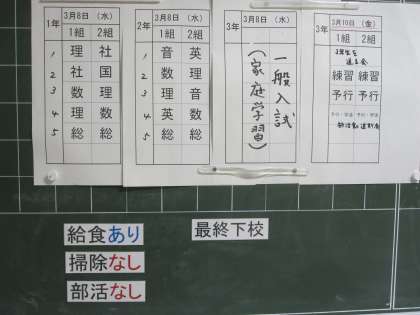 1年 3月8日 (水)
1組 2組
1 理 社
2 社 国
3 数 理
4 理 数
5 総 総
2年 3月8日 (水)
1組 2組
1 音 英
2 数 理
3 理 音
4 英 数
5 総 総
3年 3月8日 (水)
一般入試
(家庭学習)
3年 3月10日 (金)
1組 2組
3年生を
送る会
練習 練習
予行 予行
給食あり
掃除なし
部活なし
最終下校